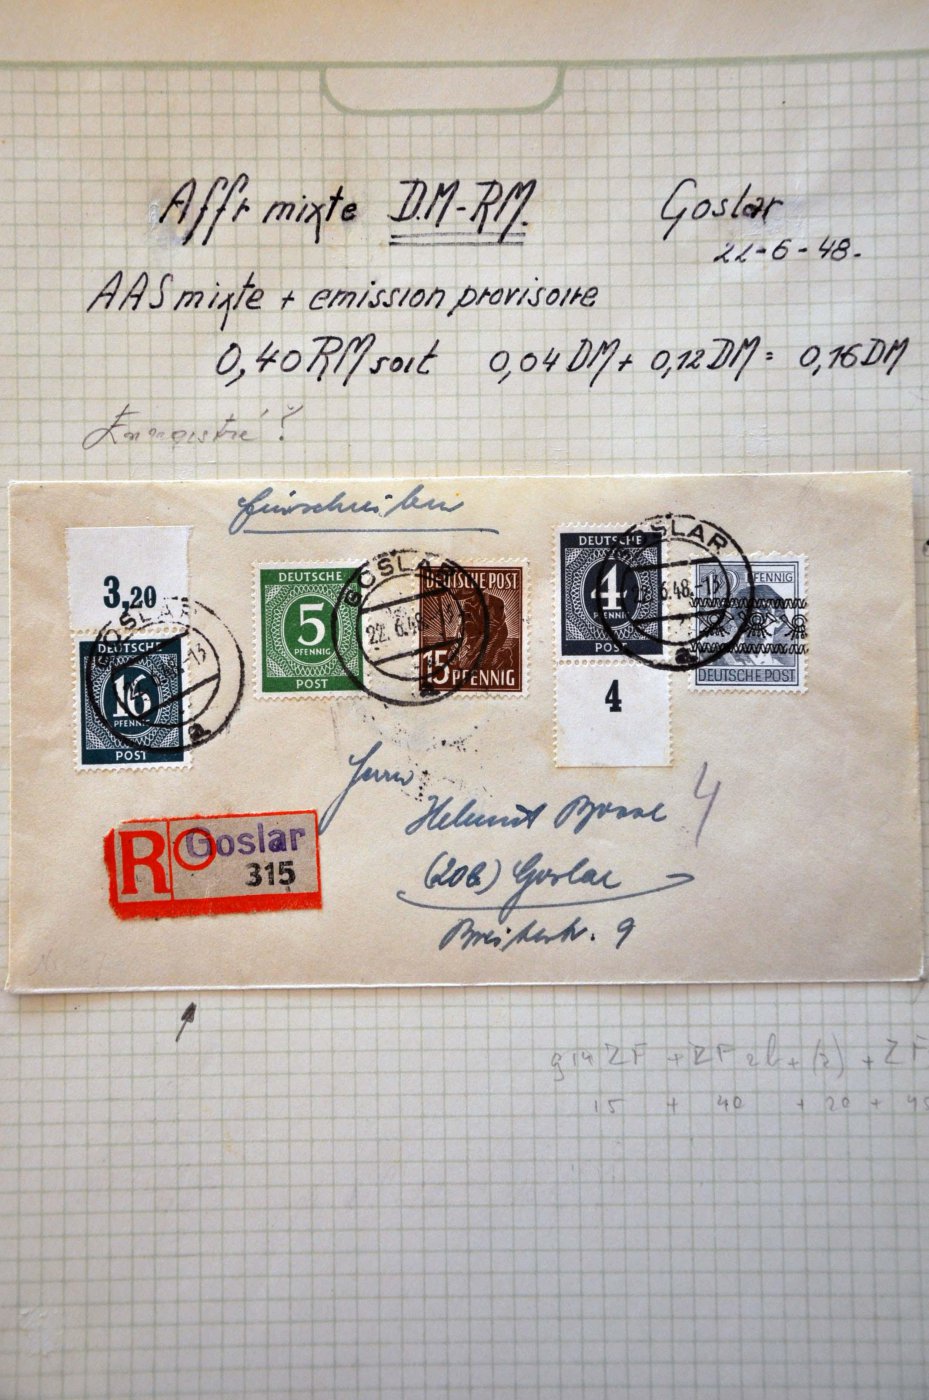 Affr mixte D.M-RM. Goslar
22-6-48.
AAS mixte + emission provisoire
0,40 RM soit 0,04 DM + 0,12 DM = 0,16 DM
Enregistré ?
Einschreiben
3,20
GOSLAR
22.6.48.-13
a
DEUTSCHE
16
PFENNIG
POST
DEUTSCHE
5
PFENNIG
POST
GOSLAR
22.6.48.-13
a
DEUTSCHE POST
15 PFENNIG
DEUTSCHE
4
PFENNIG
POST
4
GOSLAR
22.6.48.-13
a
PFENNIG
DEUTSCHE POST
Herrn
Helmut
4
(20b) Goslar
Breitestr. 9
R Goslar
315
15 + 40 + 20 +